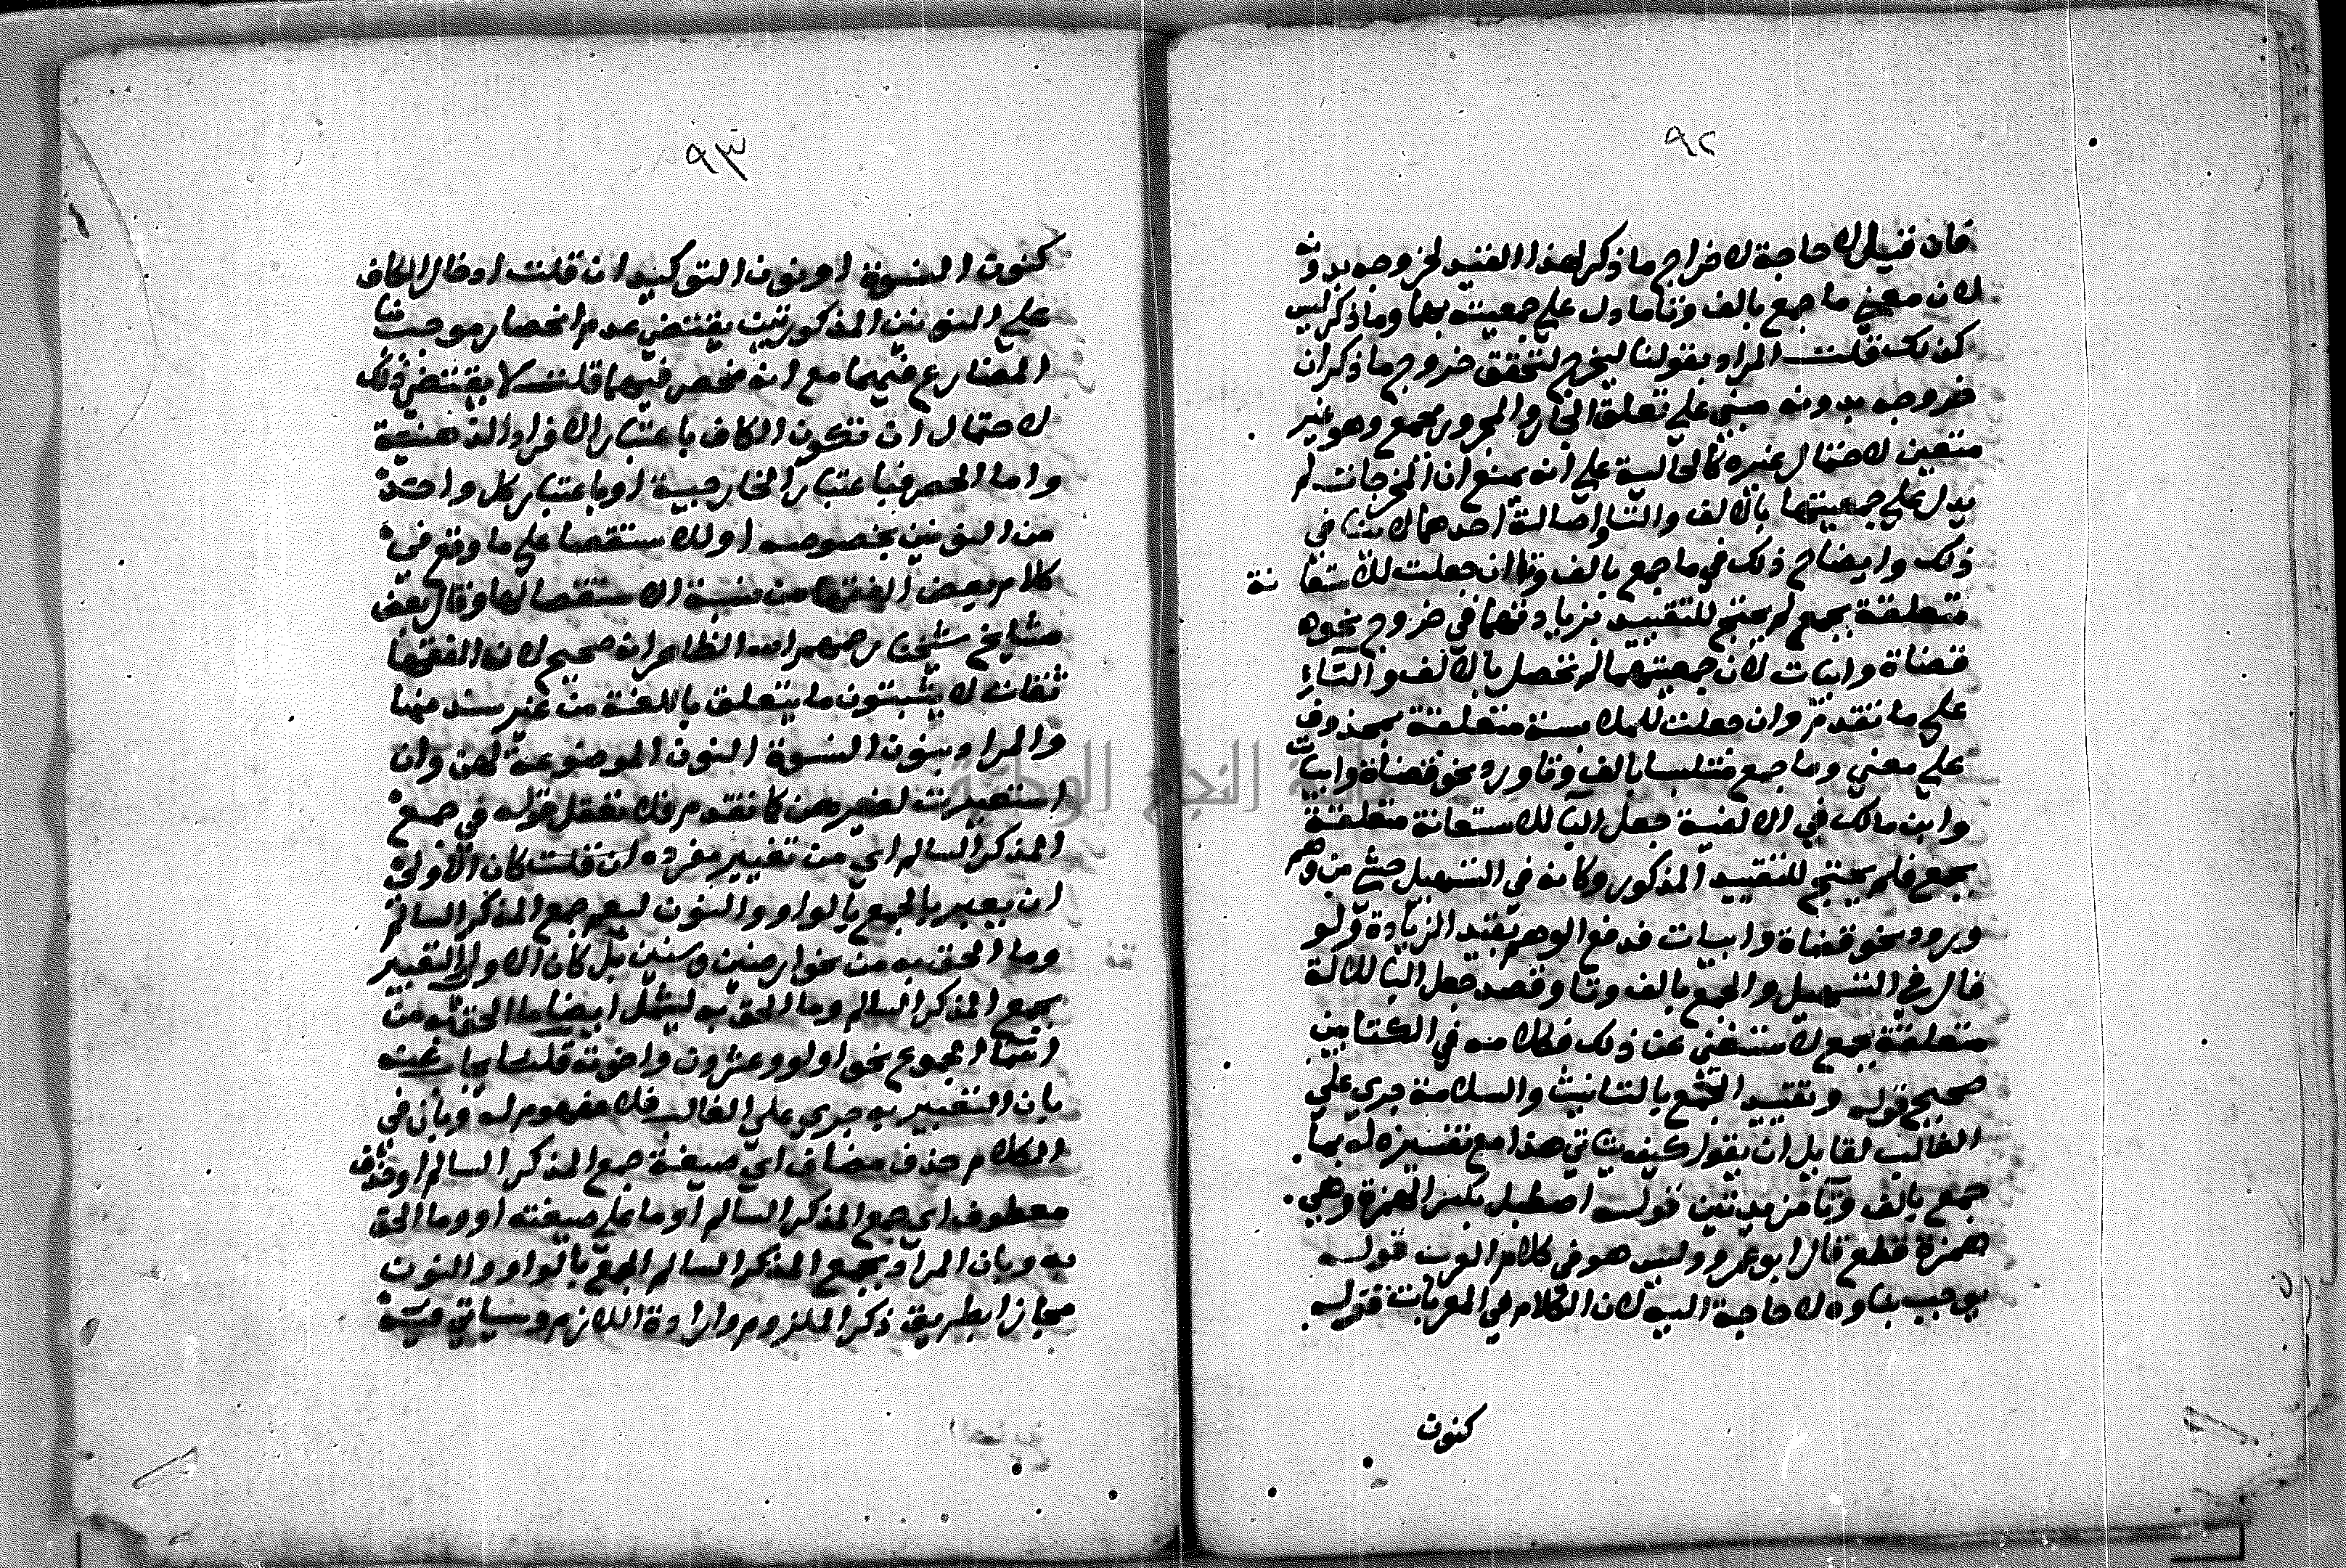 ٩٢
فان قيل لا حاجة لاخراج ما ذكر لهذا القيد لخروجه بدونه
لان معنى ما جمع بالف وتا ما دل على جمعيته بهما وما ذكر ليس
كذلك قلت المراد بقولنا ليخرج لتحقق خروج ما ذكر ان
خروجه بدونه مبني على تعلق الجار والمجرور بجمع وهو غير
متعين لاحتمال غيره كالحالية على انه يمنع ان المخرجات لم
يدل على جمعيتها بالالف والتا واصالة احدهما لا ينافي
ذلك وايضاح ذلك في ما جمع بالف وتا ان جعلت للاستعانة
متعلقة بجمع لم يحتج للتقييد بزيادتهما في خروج نحو
قضاة وابيات لان جمعيتهما لم تحصل بالالف والتاء
على ما تقدم وان جعلت للملابسة متعلقة بمحذوف
على معنى وما جمع متلبسا بالف وتا ورد نحو قضاة وابيات
وابن مالك في الالفية جعل البا للاستعانة متعلقة
بجمع فلم يحتج للتقييد المذكور وكانه في التسهيل خشي من وهم
ورود نحو قضاة وابيات فدفع الوهم بقيد الزيادة ولو
قال في التسهيل والجمع بالف وتا وقصد جعل البا للالة
متعلقة بجمع لاستغنى عن ذلك فكلامه في الكتابين
صحيح قوله وتقييد الجمع بالتانيث والسلامة جرى على
الغالب لقايل ان يقول كيف ياتي هذا مع تفسيره له بما
جمع بالف وتا مزيدتين قوله اصطبل بكسر الهمزة وهي
همزة قطع قال ابو عمرو وليس هو في كلام العرب قوله
يوجب بناوه لا حاجة اليه لان الكلام في المعربات قوله
كنون
٩٣
كنون النسوة او نون التوكيد ان قلت ادخال الكاف
على النونين المذكورتين يقتضي عدم انحصار موجب بنا
المضارع فيهما مع انه منحصر فيهما قلت لا يقتضي ذلك
لاحتمال ان تكون الكاف باعتبار الافراد الذهنية
واما الحصر فباعتبار الخارجية او باعتبار كل واحدة
من النونين بخصوصه او للاستقصا على ما وقع في
كلام بعض الفقها من نسبة الاستقصا لها وقال بعض
مشايخ شيخنا رحمهم الله الظاهر انه صحيح لان الفقها
ثقات لا يثبتون ما يتعلق باللغة من غير سند فيها
والمراد بنون النسوة النون الموضوعة لهن وان
استعيرت لغيرهن كما تقدم فلا تغفل قوله في جمع
المذكر السالم اي من تغيير مفرده ان قلت كان الاولى
ان يعبر بالجمع بالواو والنون ليعم جمع المذكر السالم
وما الحق به من نحو ارضين وسنين بل كان الاولى التعبير
بجمع المذكر السالم وما الحق به ليشمل ايضا ما الحق به من
اسما الجموع نحو اولو وعشرون واخوته قلت اجاب عنه
بان التعبير به جرى على الغالب فلا مفهوم له وبان في
الكلام حذف مضاف اي صيغة جمع المذكر السالم او حذف
معطوف اي جمع المذكر السالم او ما على صيغته او وما الحق
به وبان المراد بجمع المذكر السالم الجمع بالواو والنون
مجازا بطريق ذكر الملزوم وارادة اللازم وسياتي